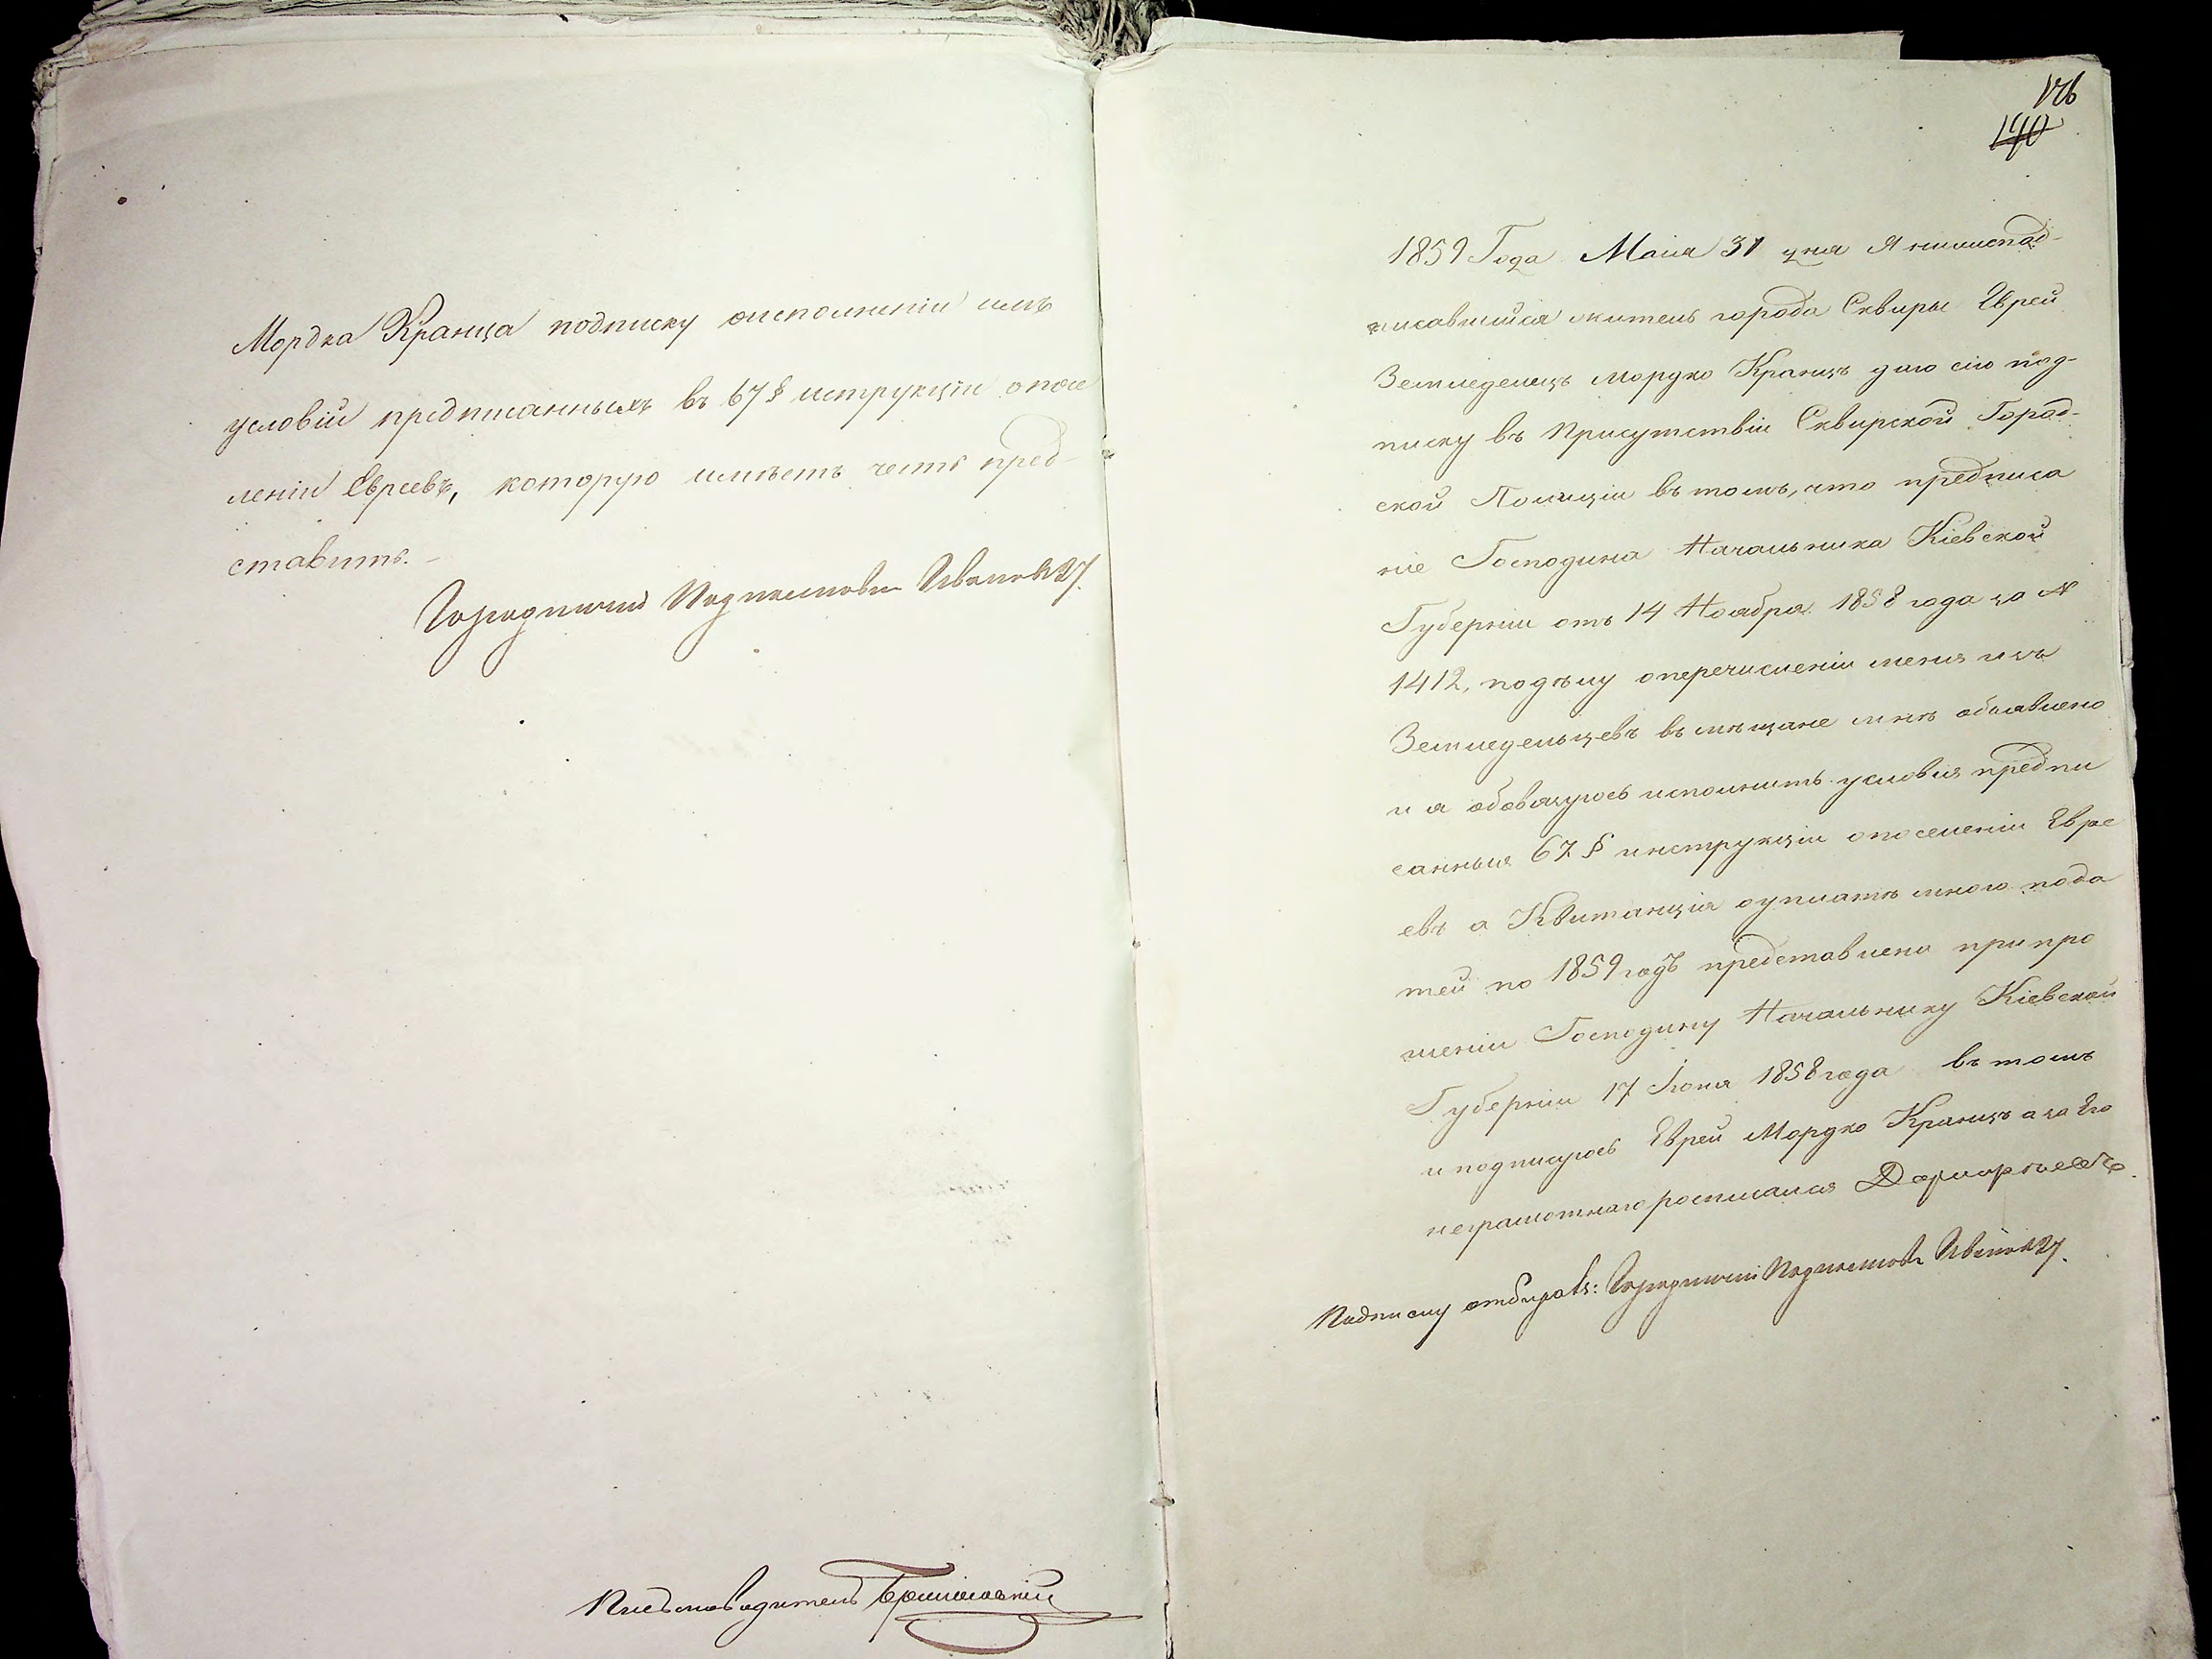 Мордка Кранца подписку оисполненіи имъ
условій предписанныхъ въ 67 § иструкціи опосе
леніи Евреевъ, которую имѣетъ честь пред-
ставить. –
Городничий Подполковн
Письмоводитель
176
140
1859 Года Маія 31 дня Я нижепод-
писавшийся житель города Сквиры Еврей
Земледелецъ Мордко Кранцъ даю сію под-
писку въ Присутствіи Сквирской Город-
ской Полиціи въ томъ, что предписа
ніе Господина Начальника Кіевской
Губерніи отъ 14 Ноября 1858 года за №
1412, подѣлу оперечисленіи меня изъ
Земледельцевъ въ мѣщане мнѣ обьявлено
и я обовязуюсь исполнить условія предпи
санныя 67 § инструкціи опоселеніи Евре
евъ а Квитанція оуплатѣ мною пода
тей по 1859 годъ представлена при про
шеніи Господину Начальнику Кіевской
Губерніи 17 Іюня 1858 года въ томъ
и подписуюсь Еврей Мордко Кранцъ а за Его
неграмотнаго росписался
Подписку отбиралъ: Городничий Подполковн